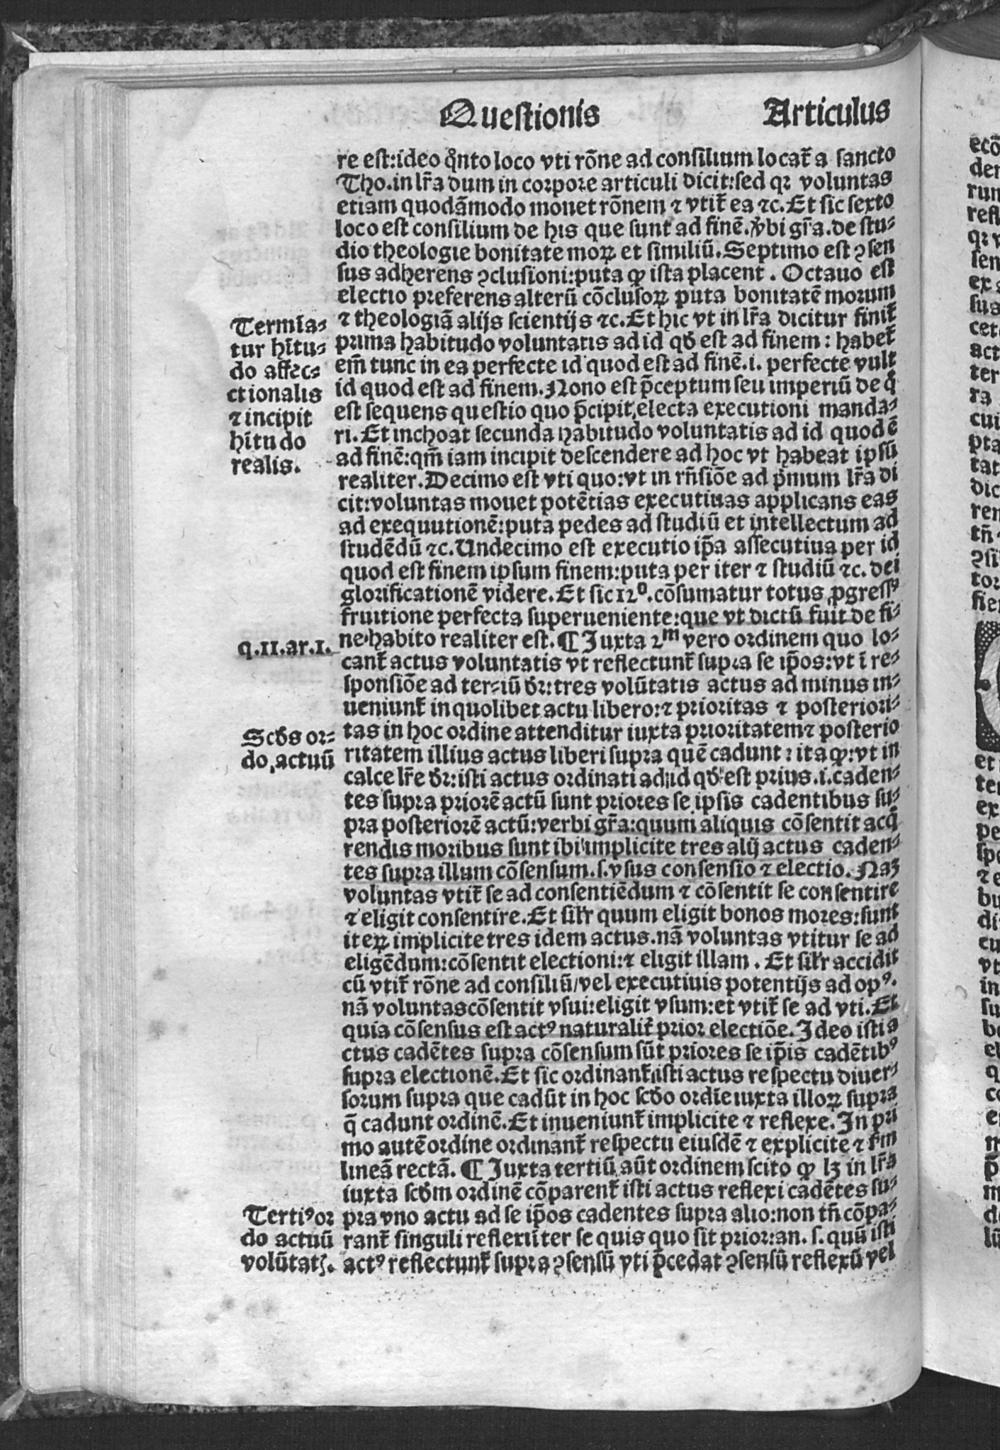 Questionis Articulus
re est:ideo qͥnto loco vti rōne ad consilium locat᷑ a sancto
Tho.in lr̄a dum in corpore articuli dicit:sed qꝛ voluntas
etiam quodāmodo mouet rōnem ⁊ vtit᷑ ea ⁊c.Et sic sexto
loco est consilium de his que sunt ad finē.v̄bi gr̄a.de stu⸗
dio theologie bonitate moꝝ et similiū.Septimo est ꝯsen
sus adherens ꝯclusioni:puta ꝙ ista placent. Octauo est
electio preferens alterū cōclusoꝝ puta bonitatē morum
⁊ theologiā alijs scientijs ⁊c.Et hic vt in lr̄a dicitur finit᷑
prima habitudo voluntatis ad id qd̄ est ad finem: habet᷑
em̄ tunc in ea perfecte id quod est ad finē.i. perfecte vult
id quod est ad finem.Nono est p̄ceptum seu imperiū de q̄
est sequens questio quo p̄cipit᷑ electa executioni manda⸗
ri.Et inchoat secunda habitudo voluntatis ad id quod ē
ad finē:qm̄ iam incipit descendere ad hoc vt habeat ipsū
realiter.Decimo est vti quo:vt in rn̄sióe ad pͥmum lr̄a di
cit:voluntas mouet potētias executiuas applicans eas
ad exequutionē:puta pedes ad studiū et intellectum ad
studēdū ⁊c.Undecimo est executio ip̄a assecutiua per id
quod est finem ipsum finem:puta per iter ⁊ studiū ⁊c. dei
glorificationē videre.Et sic 12º.cōsumatur totus ꝓgressꝰ
fruitione perfecta superueniente:que vt dictū fuit de fi⸗
ne habito realiter est.¶ Juxta 2ᵐ vero ordinem quo lo⸗
cant᷑ actus voluntatis vt reflectunt᷑ supra se ip̄os:vt ī re⸗
sponsiōe ad tertiū dr̄:tres volūtatis actus ad minus in⸗
ueniunt᷑ in quolibet actu libero:⁊ prioritas ⁊ posteriori⸗
tas in hoc ordine attenditur iuxta prioritatem ⁊ posterio
ritatem illius actus liberi supra quē cadunt: ita ꝙ:vt in
calce lr̄e dr̄:isti actus ordinati ad id qd̄ est prius.i.caden⸗
tes supra priorē actū sunt priores se ipsis cadentibus su⸗
pra posteriorē actū:verbi gr̄a:quum aliquis cōsentit acq̄
rendis moribus sunt ibi implicite tres alij actus caden⸗
tes supra illum cōsensum.s.vsus consensio ⁊ electio.Naꝫ
voluntas vtit᷑ se ad consentiēdum ⁊ cōsentit se consentire
⁊ eligit consentire.Et silr̄ quum eligit bonos mores:sunt
iteꝝ implicite tres idem actus.nā voluntas vtitur se ad
eligēdum:cōsentit electioni:⁊ eligit illam. Et silr̄ accidit
cū vtit᷑ rōne ad consiliū/vel executiuis potentijs ad opꝰ.
nā voluntas cōsentit vsui:eligit vsum:et vtit᷑ se ad vti.Et
quia cōsensus est actꝰ naturalit᷑ prior electiōe.Ideo isti a
ctus cadētes supra cōsensum sūt priores se ip̄is cadētibꝰ
supra electionē.Et sic ordinant᷑ isti actus respectu diuer⸗
sorum supra que cadūt in hoc scd̄o ordīe iuxta illoꝝ supra
q̄ cadunt ordinē.Et inueniunt᷑ implicite ⁊ reflexe.In pri
mo autē ordine ordinant᷑ respectu eiusdē ⁊ explicite ⁊ ẜm
lineā rectā. ¶ Juxta tertiū aūt ordinem scito ꝙ lꝫ in lr̄a
iuxta scd̄m ordinē cōparent᷑ isti actus reflexi cadētes su⸗
pra vno actu ad se ip̄os cadentes supra alio:non tn̄ cōpa⸗
rant᷑ singuli reflexi īter se quis quo sit prior:an. s.quū isti
actꝰ reflectunt᷑ supra ꝯsensū vti p̄cedat ꝯsensū reflexū vel
Termīa⸗
tur hītu⸗
do affec⸗
ctionalis
⁊ incipit
hītudo
realis.
q.11.ar.1.
Scd̄s or⸗
do actuū
Tertiꝰ or
do actuū
volūtatꝭ.